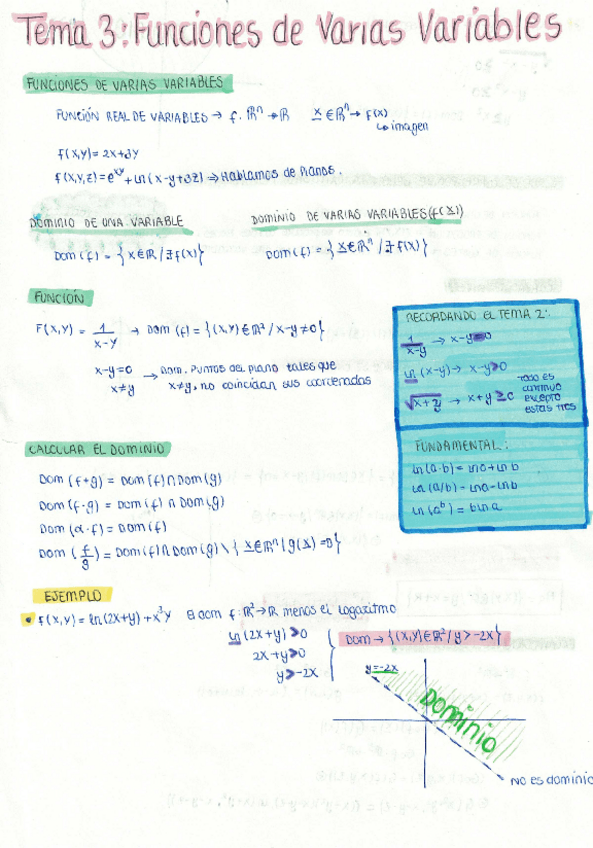 Tema 3: Funciones de Varias Variables
FUNCIONES DE VARIAS VARIABLES
FUNCIÓN REAL DE VARIABLES → f: ℝⁿ → ℝ x ∈ ℝⁿ → f(x)
↳ imagen
f(x,y) = 2x+3y
f(x,y,z) = e^xy + ln(x-y+3z) ⇒ Hablamos de planos.
DOMINIO DE UNA VARIABLE
DOMINIO DE VARIAS VARIABLES (f(x))
Dom(f) = {x∈ℝ / ∃ f(x)}
Dom(f) = {x∈ℝⁿ / ∃ f(x)}
FUNCIÓN
F(x,y) = 1/(x-y) → Dom(f) = {(x,y)∈ℝ² / x-y≠0}
x-y=0
x≠y
→ Dom. Puntos del plano tales que
x≠y, no coincidan sus coordenadas
RECORDANDO EL TEMA 2:
1/(x-y) → x-y=0
ln(x-y) → x-y>0
√x+y → x+y≥0
Todo es
continuo
excepto
estas tres
FUNDAMENTAL:
ln(a·b) = ln a + ln b
ln(a/b) = ln a - ln b
ln(a^b) = b ln a
CALCULAR EL DOMINIO
Dom(f+g) = Dom(f) ∩ Dom(g)
Dom(f·g) = Dom(f) ∩ Dom(g)
Dom(α·f) = Dom(f)
Dom(f/g) = Dom(f) ∩ Dom(g) \ {x∈ℝⁿ | g(x)=0}
EJEMPLO
• F(x,y) = ln(2x+y) + x³y El dom f: ℝ² → ℝ menos el logaritmo
ln(2x+y) > 0
2x+y > 0
y > -2x
Dom → {(x,y)∈ℝ² / y > -2x}
y=-2x
Dominio
No es dominio